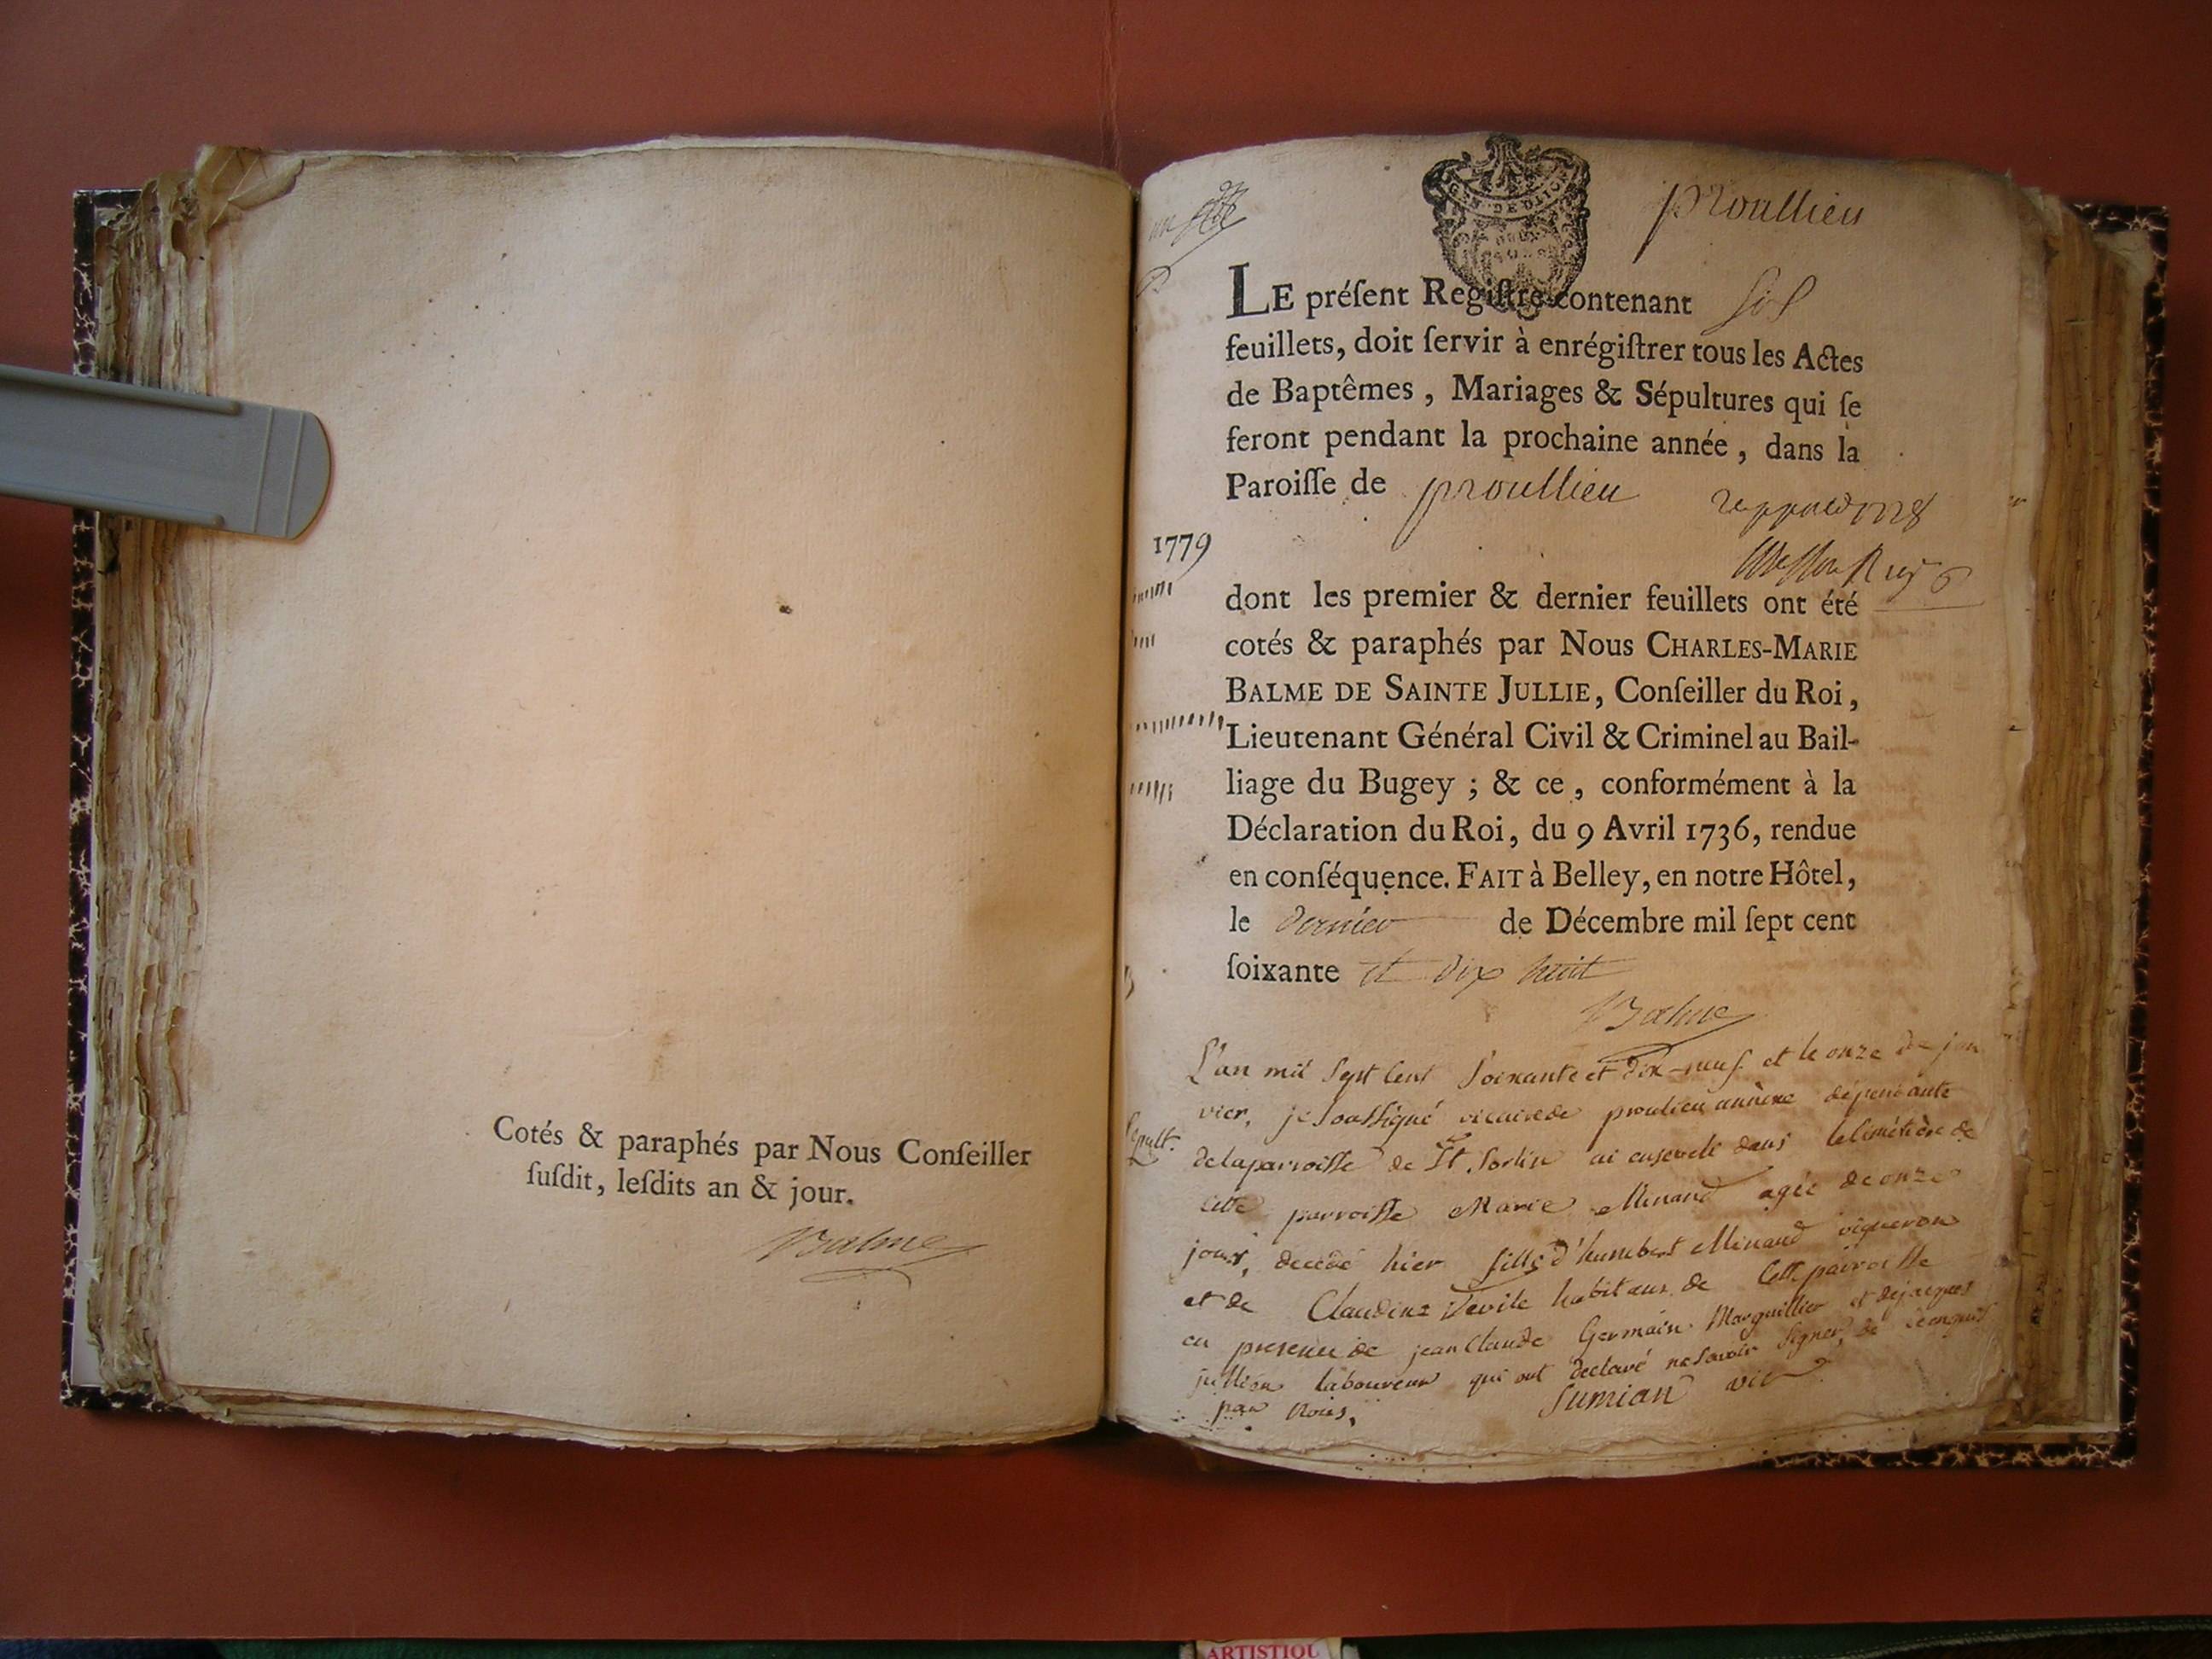 Cotés & paraphés par Nous Conſeiller
ſuſdit, leſdits an & jour.
Balme
proullieu
LE préſent Regiſtre contenant six
feuillets, doit ſervir à enrégiſtrer tous les Actes
de Baptêmes, Mariages & Sépultures qui ſe
feront pendant la prochaine année, dans la
Paroiſſe de proullieu
1779
dont les premier & dernier feuillets ont été
cotés & paraphés par Nous CHARLES-MARIE
BALME DE SAINTE JULLIE, Conſeiller du Roi,
Lieutenant Général Civil & Criminel au Bail-
liage du Bugey ; & ce, conformément à la
Déclaration du Roi, du 9 Avril 1736, rendue
en conſéquence. FAIT à Belley, en notre Hôtel,
le dernier de Décembre mil ſept cent
ſoixante et dix huit
Balme
L'an mil sept cent soixante et dix-neuf et le onze de jan
vier, je soussigné vicaire de proulieu annexe dépendante
Sepult.
de la parroisse de St. Sorlin ai enseveli dans le cimétière de
cette parroisse Marie Minand agée de onze
jours, decédé hier fille d'humbert Minand vigneron
et de Claudine Devile habitans de cette parroisse
en presence de jean Claude Germain Marguillier et de jacques
jullien laboureur qui ont declaré ne savoir signer, de ce enquis
par nous,
Sumian vic
ARTISTIQU